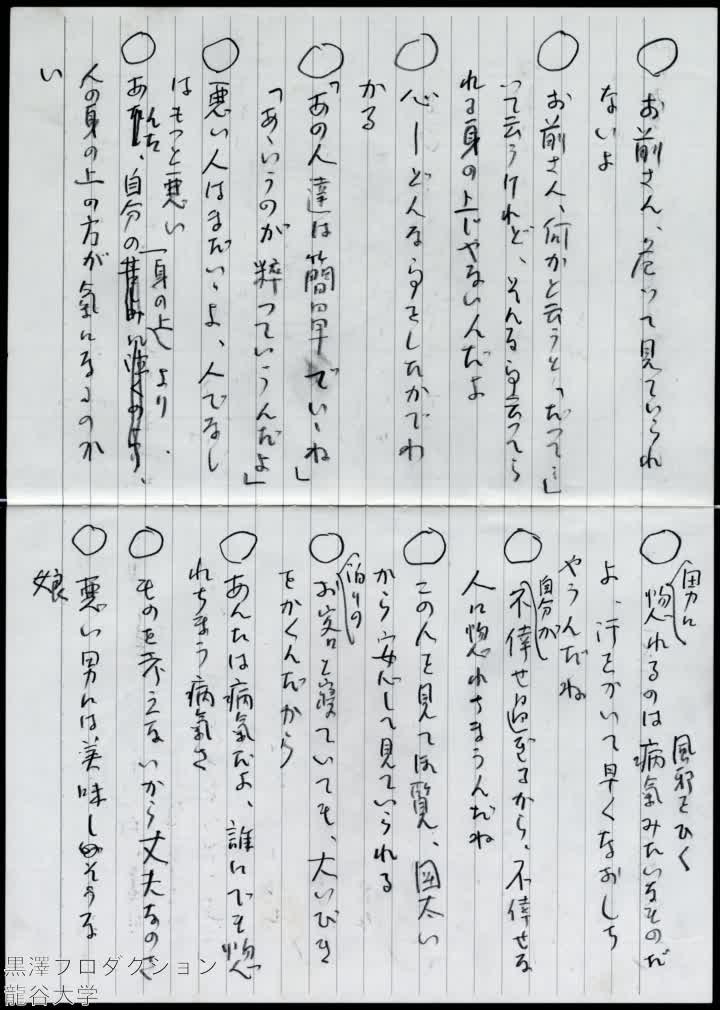 〇お前さん、危いって見ていられ
ないよ
〇お前さん、何かと云うと「だって…」
って云うけれど、そんな事云ってら
れる身の上じゃないんだよ
〇心一どんな事をしたかでわ
かる
〇「あの人達は簡単でいゝね」
「あゝいうのが粋っていうんだよ」
〇悪い人はまだいゝよ、人でなし
はもっと悪い
〇あんた、自分の身の上より、
人の身の上の方が氣になるのか
い
〇男に惚れるのは病氣みたいなものだ
風邪をひく
よ、汗をかいて早くなおしち
やうんだね
〇自分が不倖せ過ぎるから、不倖せな
人に惚れちまうんだね
〇この人を見て御覧、図太い
から安心して見ていられる
〇泊りのお客と寝ていても、大いびき
をかくんだから
〇あんたは病氣だよ、誰にでも惚
れちまう病氣さ
〇ものを考えないから丈夫なのさ
〇悪い男には美味しそうな
娘
黒澤プロダクション
龍谷大学